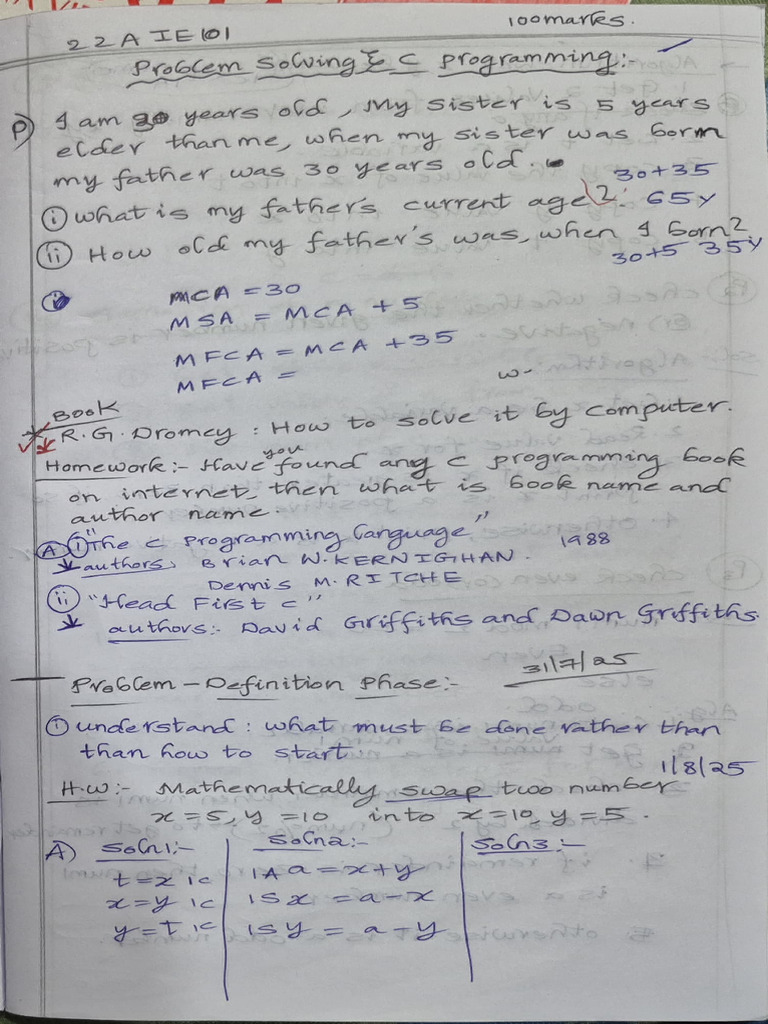 100marks.
22AIE101
Problem Solving & C programming:-
P) I am 30 years old, My sister is 5 years
elder than me, when my sister was born
my father was 30 years old.
30+35
(i) what is my father's current age? 65y
(ii) How old my father's was, when I born?
30+5 35y
(i) MCA = 30
MSA = MCA + 5
MFCA = MCA + 35
MFCA =
w-
Book
R.G. Dromey : How to solve it by computer.
Homework:- Have you found any c programming book
on internet, then what is book name and
author name.
(A) (i) "The C Programming Language" 1988
authors, Brian W. KERNIGHAN.
Dennis M. RITCHE
(ii) "Head First C"
authors:- David Griffiths and Dawn Griffiths.
31/7/25
Problem-Definition Phase:-
(i) understand : what must be done rather than
than how to start
1/8/25
H.W:- Mathematically swap two number
x=5, y=10 into x=10, y=5.
A) Soln1:- Soln2:- Soln3:-
t=x 1c 1A a=x+y
x=y 1c 1S x = a-x
y=t 1c 1S y = a-y